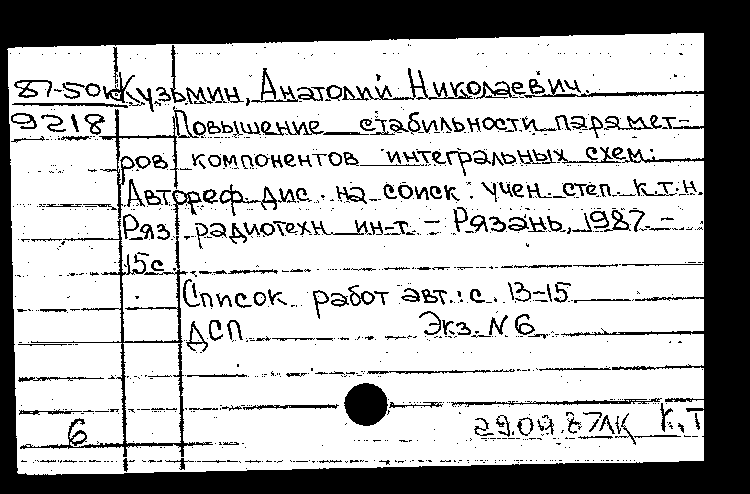 87-50к Кузьмин, Анатолий Николаевич.
9218 Повышение стабильности парамет-
ров компонентов интегральных схем:
Автореф. дис. на соиск. учен. степ. к.т.н.
Ряз. радиотехн. ин-т. - Рязань, 1987. -
15с.
Список работ авт.: с. 13-15
ДСП Экз. N 6
6 К,Т